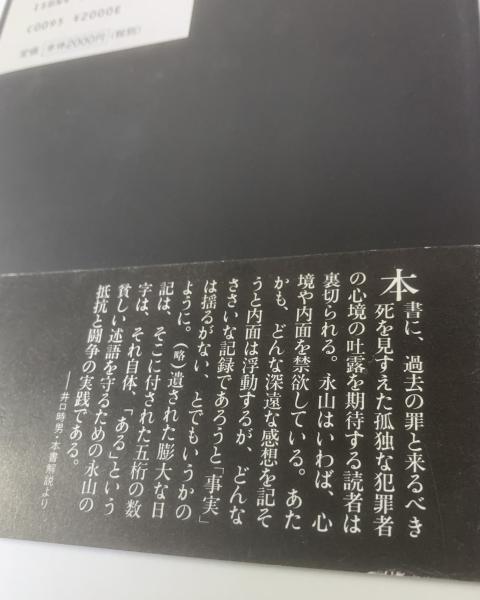 C0095 ¥2000E
定価 本体2000円 (税別)
本書に、過去の罪と来るべき
死を見すえた孤独な犯罪者
の心境の吐露を期待する読者は
裏切られる。永山はいわば、心
境や内面を禁欲している。あた
かも、どんな深遠な感想を記そ
うと内面は浮動するが、どんな
ささいな記録であろうと「事実」
は揺るがない、とでもいうかの
ように。(略)遺された膨大な日
記は、そこに付された五桁の数
字は、それ自体、「ある」という
貧しい述語を守るための永山の
抵抗と闘争の実践である。
──井口時男・本書解説より